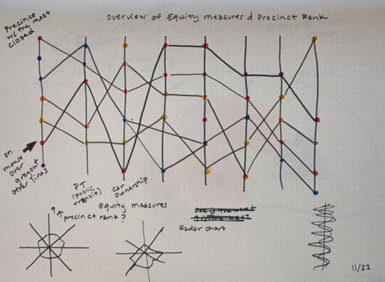 Overview of Equity measures & Precinct Rank
Precinct
w/ the most
closed
on
move
over
PT
(public
transit)
Car
Ownership
Equity measures
precinct rank?
Radar chart
11/22